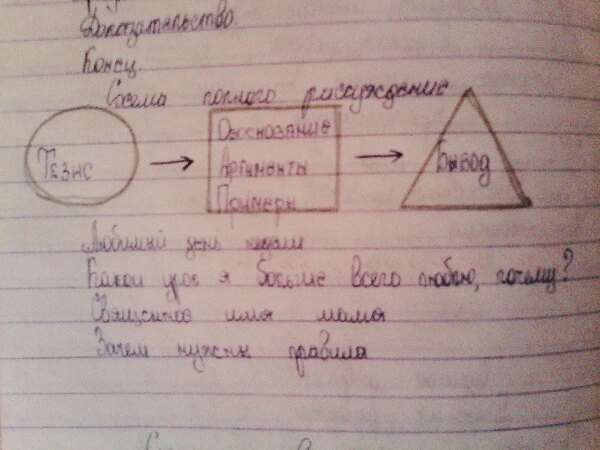 Доказательство.
Конец.
Схема полного рассуждение
Тезис → Обоснование Аргументы Примеры → Вывод
Любимый день недели
Какой урок я больше всего люблю, почему?
Священное имя мама
Зачем нужны правила